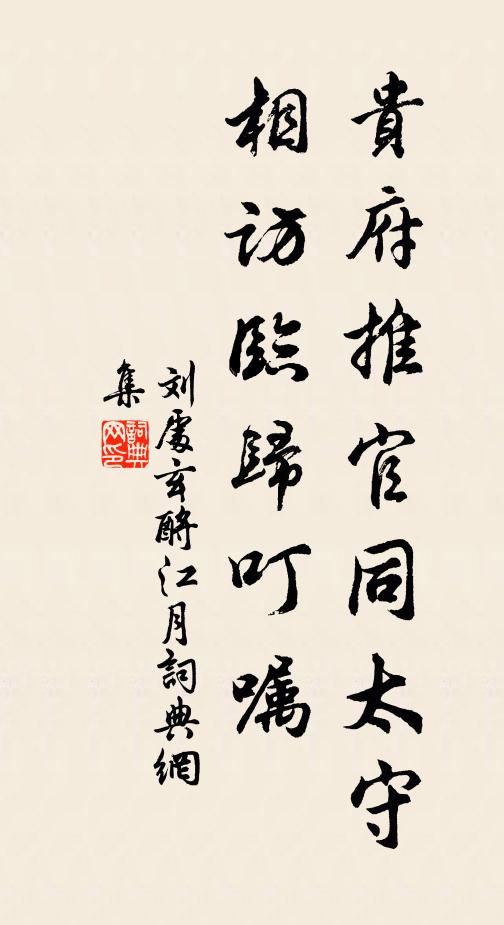 貴府推官同太守
相訪臨歸叮嘱
刘處玄酹江月詞典網
集
詞典网印